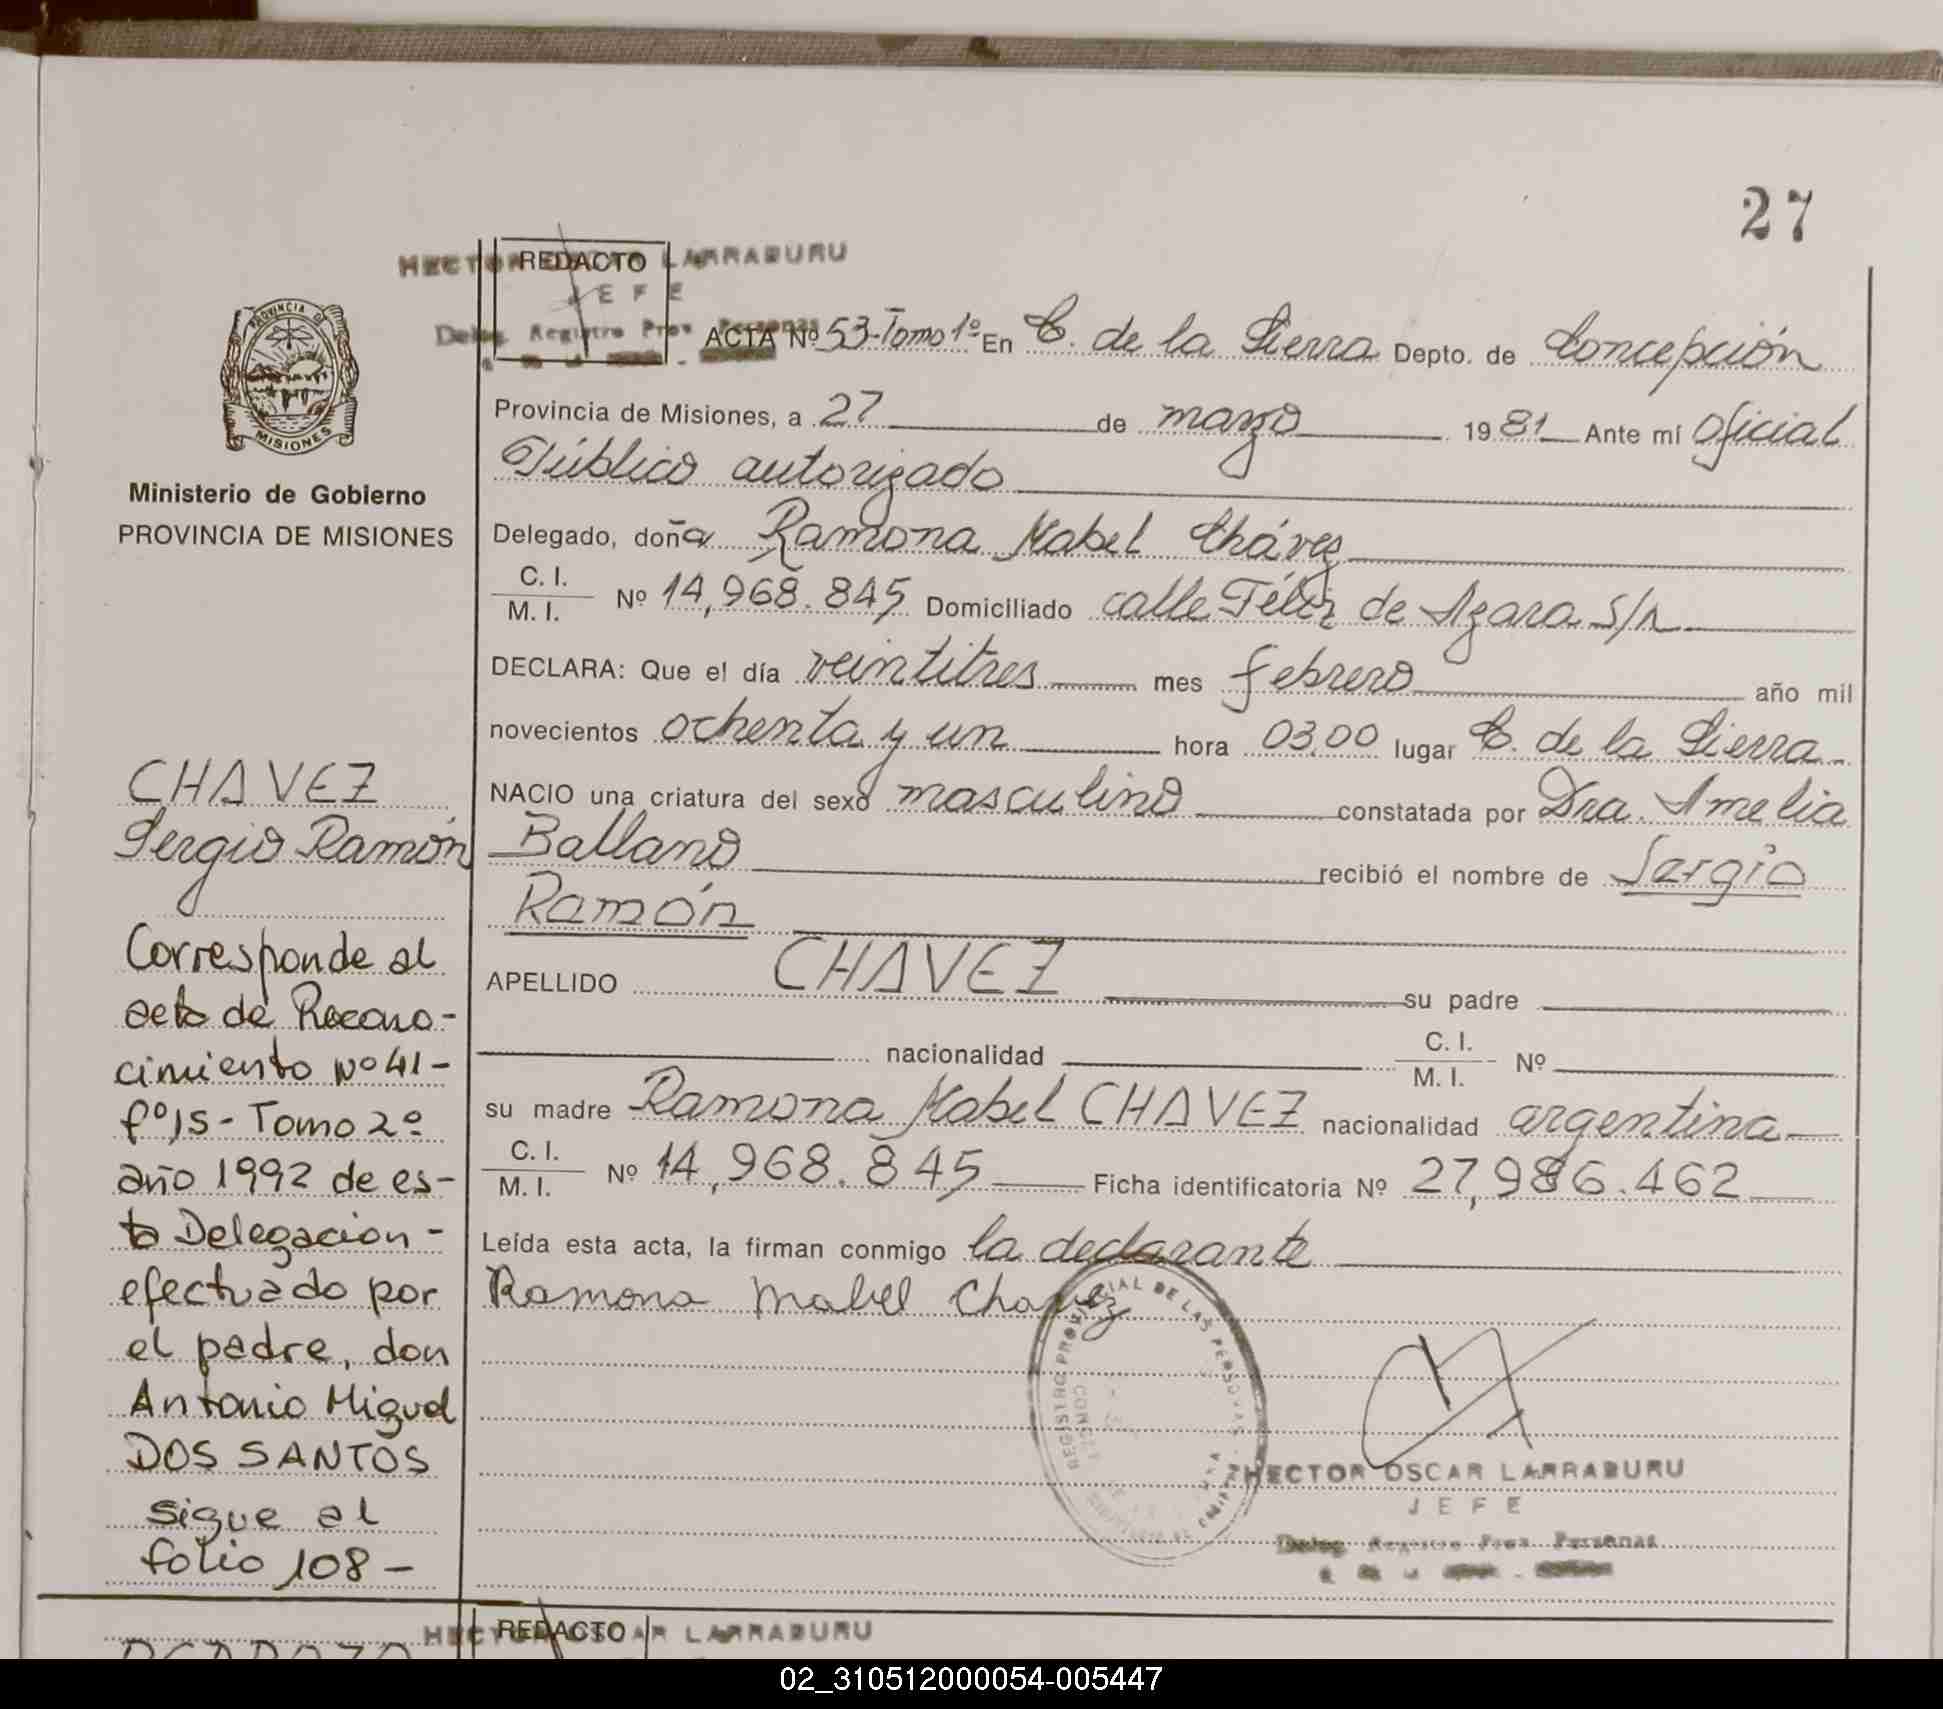 27
HECTOR OSCAR LARRABURU
REDACTO
JEFE
Deleg. Registro Prov. Personas
PROVINCIA DE
MISIONES
Ministerio de Gobierno
PROVINCIA DE MISIONES
ACTA Nº 53-Tomo 1º En C. de la Sierra Depto. de Concepción
Provincia de Misiones, a 27 de marzo 1981 Ante mí Oficial
Público autorizado
Delegado, doña Ramona Mabel Chávez
C. I.
M. I. Nº 14,968.845 Domiciliado calle Félix de Azara S/n
DECLARA: Que el día veintitres mes febrero año mil
novecientos ochenta y un hora 03,00 lugar C. de la Sierra
NACIO una criatura del sexo masculino constatada por Dra. Amelia
Ballano recibió el nombre de Sergio
Ramón
APELLIDO CHAVEZ su padre
nacionalidad C. I.
M. I. Nº
su madre Ramona Mabel CHAVEZ nacionalidad argentina
C. I.
M. I. Nº 14,968.845 Ficha identificatoria Nº 27,986.462
Leída esta acta, la firman conmigo la declarante
Ramona Mabel Chavez
REGISTRO PROVINCIAL DE LAS PERSONAS
HECTOR OSCAR LARRABURU
JEFE
Deleg. Registro Prov. Personas
CHAVEZ
Sergio Ramón
Corresponde al
acta de Recono-
cimiento Nº 41-
fº 15- Tomo 2º
año 1992 de es-
ta Delegacion-
efectuado por
el padre, don
Antonio Miguel
DOS SANTOS
sigue al
folio 108-
HECTOR OSCAR LARRABURU
REDACTO
02_310512000054-005447